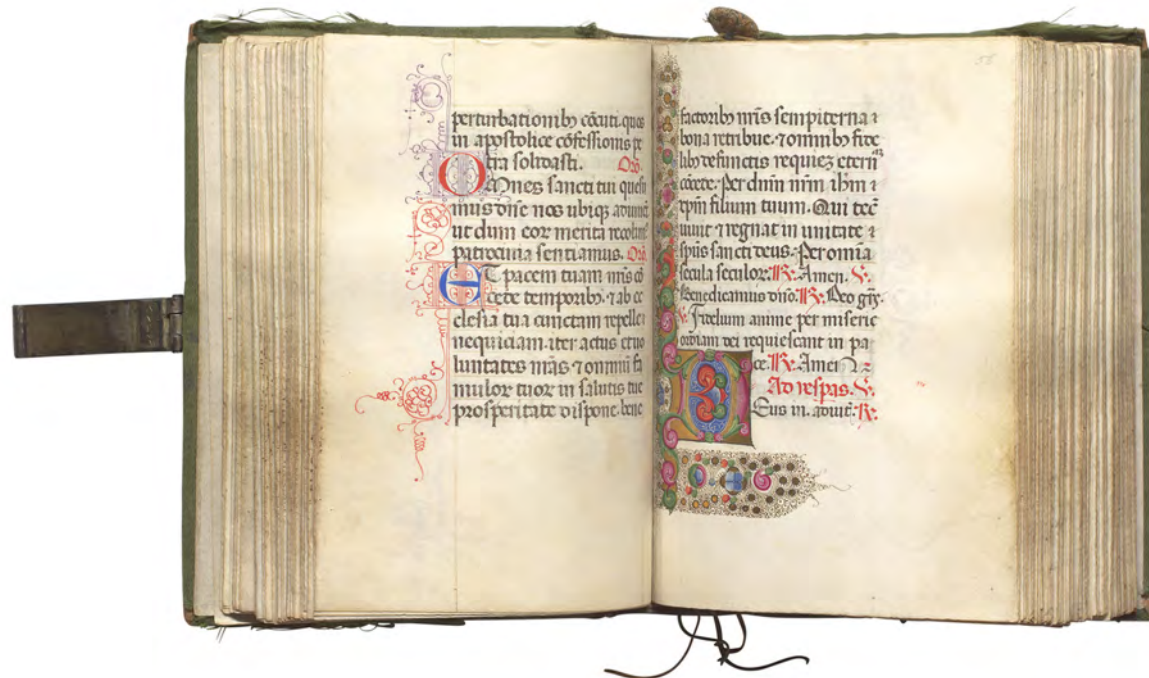 perturbationibꝫ cōcuti. quos
in apostolice cōfessionis pe
tra solidasti. Orō.
OMnes sancti tui quesu
mus dn̄e nos ubiqꝫ adiuuēt
ut dum eor merita recolimꝰ
patrocinia sentiamus. Orō.
ET pacem tuam nr̄is cō
cede temporibꝫ. ⁊ ab ec
clesia tua cunctam repelle
nequiciam. iter actus ⁊ uo
luntates nr̄as ⁊ omniū fa
mulor tuor in salutis tue
prosperitate dispone. bene
58
factoribꝫ nr̄is sempiterna ⁊
bona retribue. ⁊ omnibꝫ fide
libꝫ defunctis requieꝫ eternā
cōcede. Per dn̄m nr̄m ih̄m ⁊
xp̄m filium tuum. Qui tecū
uiuit ⁊ regnat in unitate ⁊
sp̄us sancti deus. Per omīa
secula seculor. ℟. Amen. ℣.
Benedicamus dn̄o. ℟. Deo gr̄s.
℣. Fidelium anime per miseric
ordiam dei requiescant in pa
ce. ℟. Amen
Ad vesp̄as. ℣.
DEus in. adiut̄. ℟.